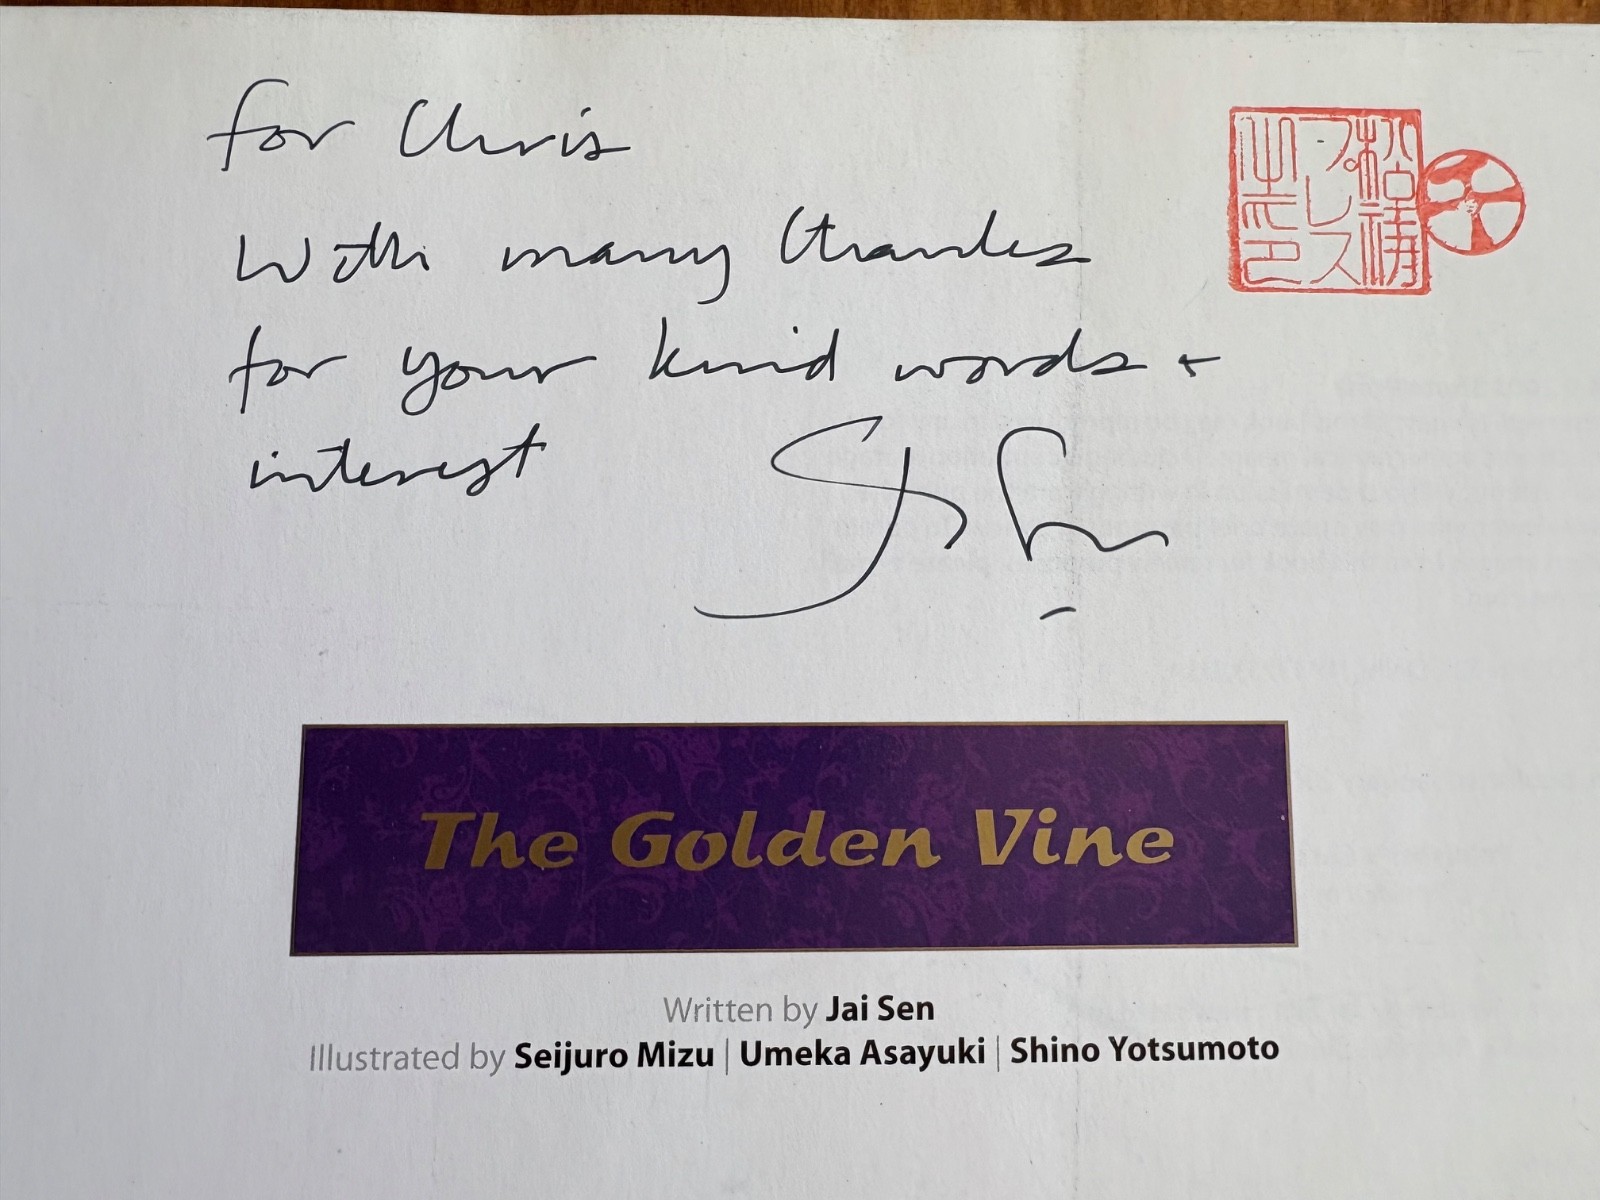 for Chris
With many thanks
for your kind words +
interest
The Golden Vine
Written by Jai Sen
Illustrated by Seijuro Mizu | Umeka Asayuki | Shino Yotsumoto